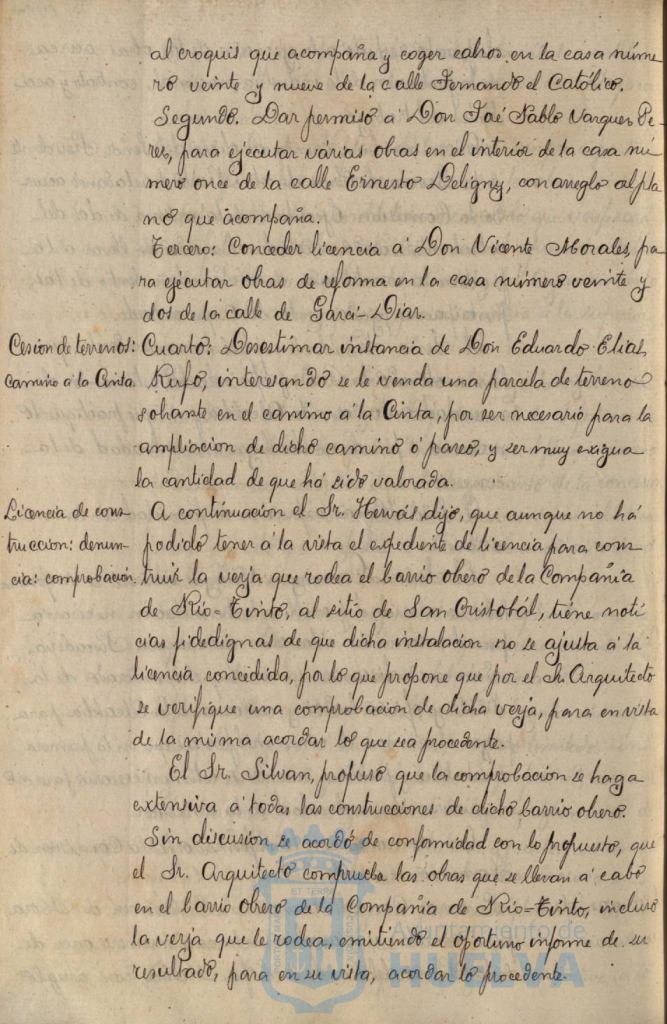 al croquis que acompaña y coger calros en la casa núme
ro veinte y nueve de la calle Fernando el Católico.
Segundo. Dar permiso á Don José Pablo Vazquez Pe-
res, para ejecutar várias obras en el interior de la casa nú
mero once de la calle Ernesto Deligny, con arreglo al pla
no que acompaña.
Tercero: Conceder licencia á Don Vicente Morales, pa
ra ejecutar obras de reforma en la casa número veinte y
dos de la calle de Garci-Diaz.
Cesion de terrenos: Cuarto: Desestimar instancia de Don Eduardo Elias
camino á la Cinta. Rufo, interesando se le venda una parcela de terreno
sobrante en el camino á la Cinta, por ser necesario para la
ampliacion de dicho camino ó paseo, y ser muy exigua
la cantidad de que há sido valorada.
Licencia de cons A continuacion el Sr. Hervás, dijo, que aunque no há
truccion: denun- podido tener á la vista el expediente de licencia para cons
cia: comprobación. truir la verja que rodea el barrio obrero de la Compañia
de Rio=Tinto, al sitio de San Cristobál, tiene noti
cias fidedignas de que dicha instalacion no se ajusta á la
licencia concedida, por lo que propone que por el Arquitecto
se verifique una comprobacion de dicha verja, para en vista
de la misma acordar lo que sea procedente.
El Sr. Silvan, propuso que la comprobacion se haga
extensiva á todas las construcciones de dicho barrio obrero.
Sin discusion se acordó de conformidad con lo propuesto, que
el Sr. Arquitecto compruebe las obras que se llevan á cabo
en el barrio obrero de la Compañia de Rio=Tinto, incluso
la verja que le rodea, emitiendo el oportuno informe de su
resultado, para en su vista, acordar lo procedente.
Ayuntamiento de
HUELVA